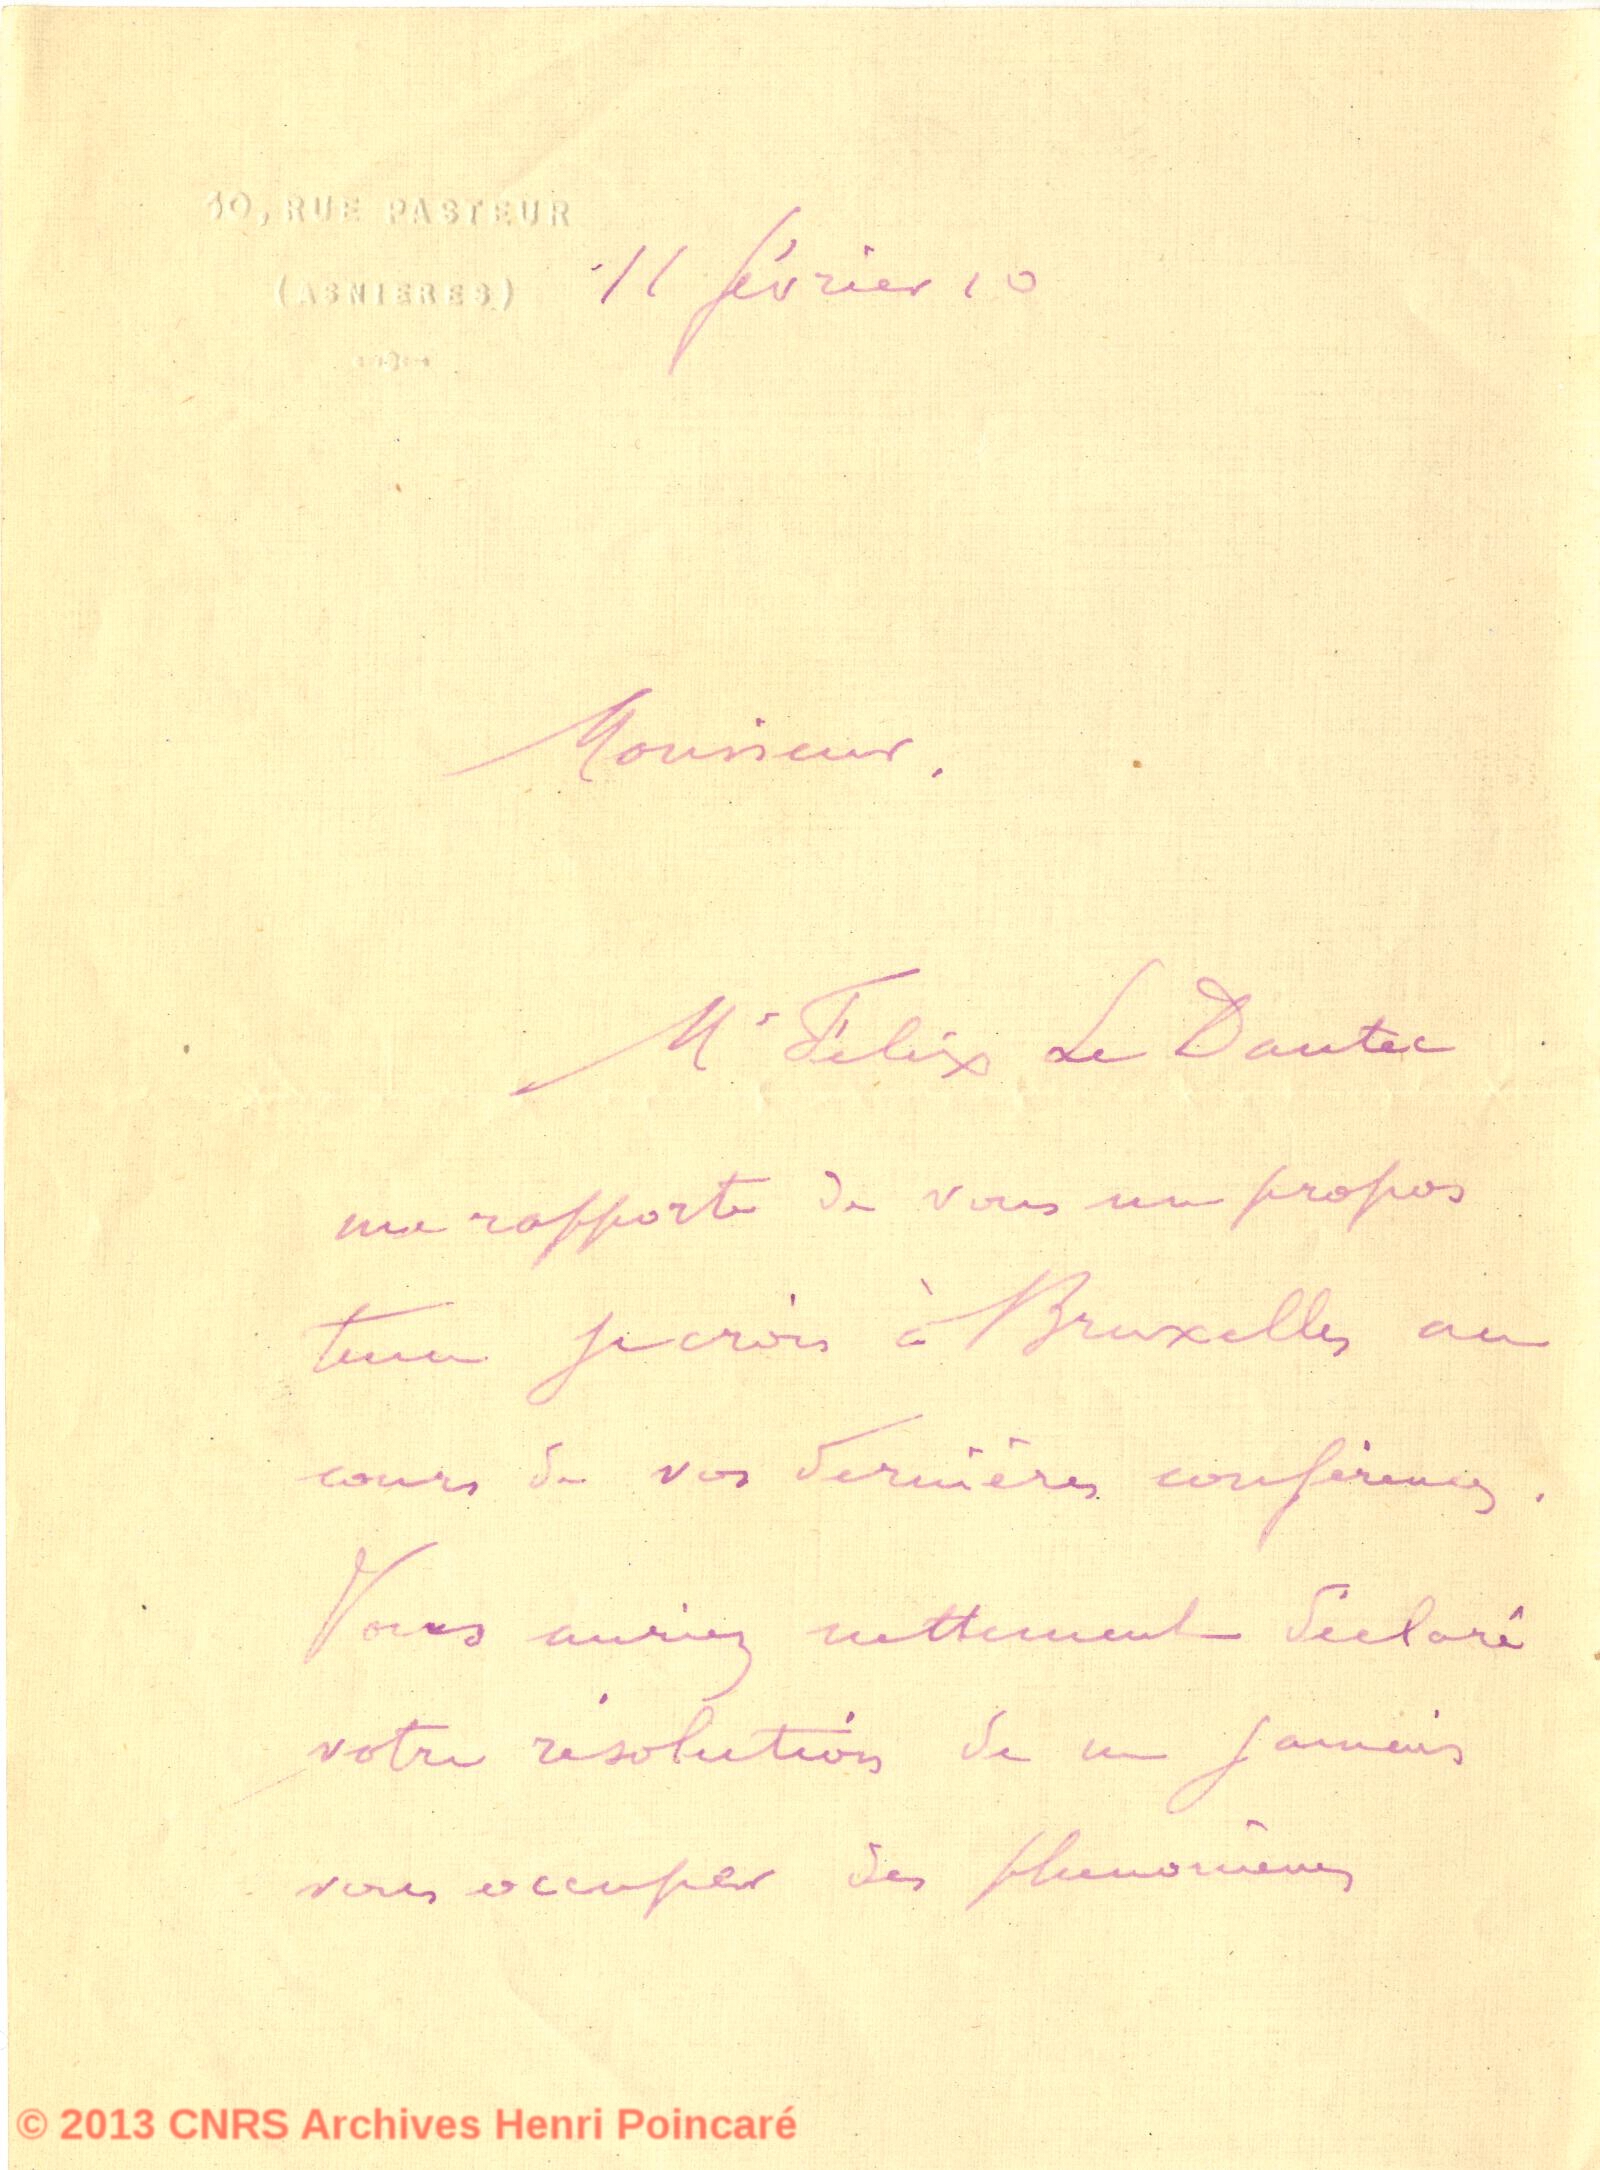 10, RUE PASTEUR
(ASNIERES)
11 février 10
Monsieur.
Mr Félix Le Dantec
me rapporte de vous un propos
tenu je crois à Bruxelles au
cours de vos dernières conférences.
Vous auriez nettement déclaré
votre résolution de ne jamais
vous occuper des phénomènes
© 2013 CNRS Archives Henri Poincaré